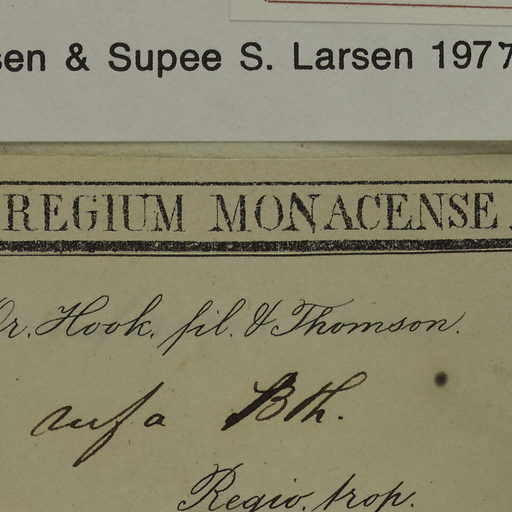 sen & Supee S. Larsen 1977
REGIUM MONACENSE.
Dr. Hook. fil. & Thomson.
rufa Bth.
Regio. trop.